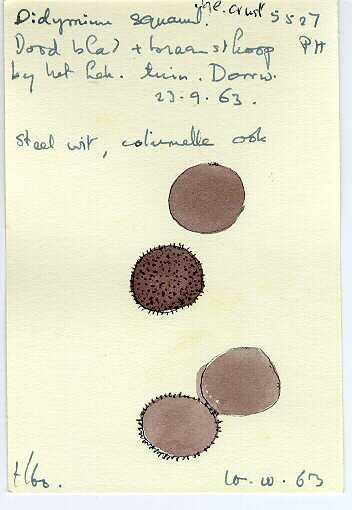 Didymium squamul. inc. crust 5527
Dood blad + braamsthoop PH
by het Lab. tuin. Dorrw.
23.9.63.
steel wit, columelle ook
10.10.63